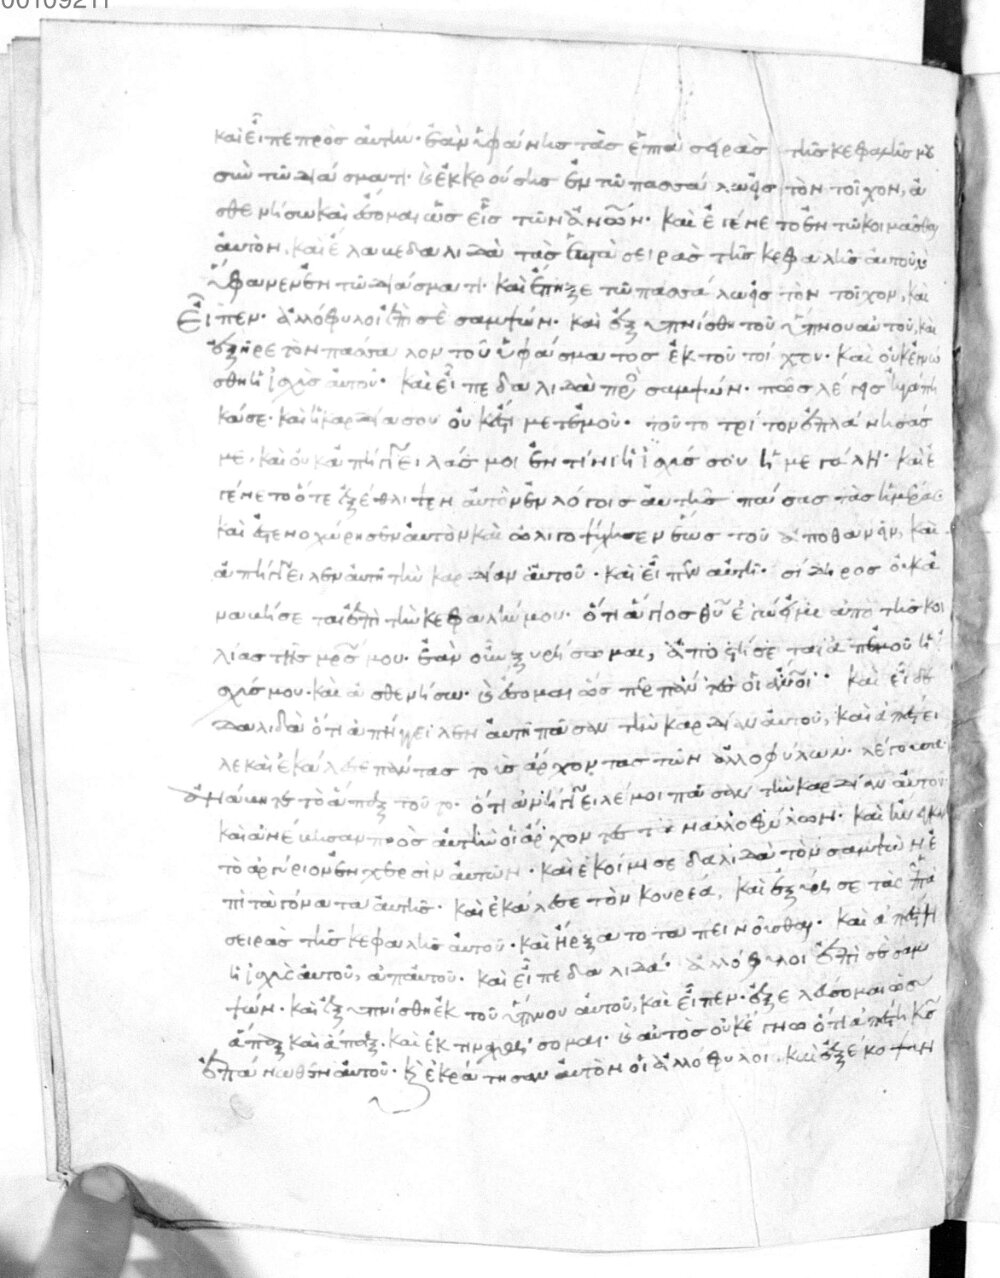 00109211
καὶ εἶπε πρὸς αὐτήν· ἐὰν ὑφάνης τὰς ἑπτὰ σειρὰς τῆς κεφαλῆς μου
σὺν τῶ διάσματι· καὶ ἐκκρούσης ἐν τῶ πασσάλω εἰς τὸν τοῖχον, ἀ
σθενήσω καὶ ἔσομαι ὡς εἷς τῶν ἀνων· καὶ ἐγένετο ἐν τῶ κοιμᾶσθαι
αὐτὸν, καὶ ἔλαβε δαλιδὰ τὰς ἑπτὰ σειρὰς τῆς κεφαλῆς αὐτοῦ καὶ
ὕφανεν ἐν τῶ διάσματι· καὶ ἔπηξε τῶ πασσάλω εἰς τὸν τοῖχον, καὶ
Εἶπεν· ἀλλόφυλοι ἐπὶ σὲ σαμψών· καὶ ἐξυπνίσθη τοῦ ὕπνου αὐτοῦ, καὶ
ἐξῆρε τὸν πάσσαλον τοῦ ὑφάσματος ἐκ τοῦ τοίχου· καὶ οὐκ ἐγνώ
σθη ἡ ἰσχὺς αὐτοῦ· καὶ εἶπε δαλιδὰ πρὸς σαμψών· πῶς λέγης ἠγάπη
κά σε· καὶ ἡ καρδία σου οὐκ ἔστι μετ ἐμοῦ· τοῦτο τρίτον ἐπλάνησάς
με, καὶ οὐκ ἀπήγγειλάς μοι ἐν τίνι ἡ ἰσχύς σου ἡ μεγάλη· καὶ ἐ
γένετο ὅτε ἐξέθλιψεν αὐτὸν ἐν λόγοις αὐτῆς πάσας τὰς ἡμέρας
καὶ ἐστενοχώρησεν αὐτὸν καὶ ὀλιγοψύχησεν ἕως τοῦ ἀποθανεῖν, καὶ
ἀπήγγειλεν αὐτῆ τὴν καρδίαν αὐτοῦ· καὶ εἶπεν αὐτῆ· σίδηρος οὐκ ἀ
ναβήσεται ἐπὶ τὴν κεφαλήν μου· ὅτι ἅγιος θυ ἐγώ εἰμι ἀπὸ τῆς κοι
λίας τῆς μρς μου· ἐὰν οὖν ξυρήσωμαι, ἀποστήσεται ἀπ ἐμοῦ ἡ ἰ
σχύς μου· καὶ ἀσθενήσω· καὶ ἔσομαι ὡς πάντες οἱ ανοι· καὶ εἶδε
δαλιδὰ ὅτι ἀπήγγειλεν αὐτῆ πᾶσαν τὴν καρδίαν αὐτοῦ, καὶ ἀπέστει
λε καὶ ἐκάλεσε πάντας τοὺς ἄρχοντας τῶν ἀλλοφύλων· λέγουσα
ἀνάβητε τὸ ἅπαξ τοῦτο· ὅτι ἀνήγγειλέ μοι πᾶσαν τὴν καρδίαν αὐτοῦ
καὶ ἀνέβησαν πρὸς αὐτὴν οἱ ἄρχοντες τῶν ἀλλοφύλων· καὶ ἤνεγκαν
τὸ ἀργύριον ἐν χερσὶν αὐτῶν· καὶ ἐκοίμισε δαλιδὰ τὸν σαμψὼν ἐ
πὶ τὰ γόνατα αὐτῆς· καὶ ἐκάλεσε τὸν κουρέα, καὶ ἐξύρησε τὰς ἑπτὰ
σειρὰς τῆς κεφαλῆς αὐτοῦ· καὶ ἤρξατο ταπεινοῦσθαι· καὶ ἀπέστη
ἡ ἰσχὺς αὐτοῦ, ἀπ αὐτοῦ· καὶ εἶπε δαλιδά· ἀλλόφυλοι ἐπὶ σὲ σαμ
ψών· καὶ ἐξυπνίσθη ἐκ τοῦ ὕπνου αὐτοῦ, καὶ εἶπεν· ἐξελεύσομαι ὡς
ἅπαξ καὶ ἅπαξ· καὶ ἐκτιναχθήσομαι· καὶ αὐτὸς οὐκ ἔγνω ὅτι ἀπέστη κς
ἐπάνωθεν αὐτοῦ· καὶ ἐκράτησαν αὐτὸν οἱ ἀλλόφυλοι· καὶ ἐξέκοψαν